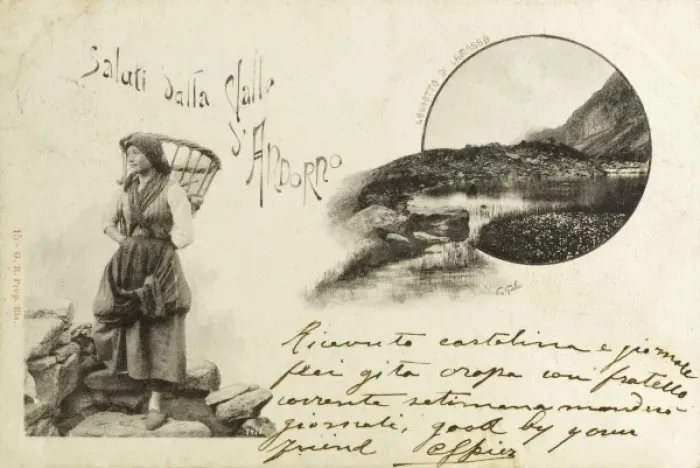 Saluti dalla Valle
d'Andorno
LAGHETTO DI LAMOSSA
15 - G. B. Prop. Ris.
Ricevuto cartolina e giornale
feci gita oropa con fratello
corrente setimana manderò
giornali, good by your
friend